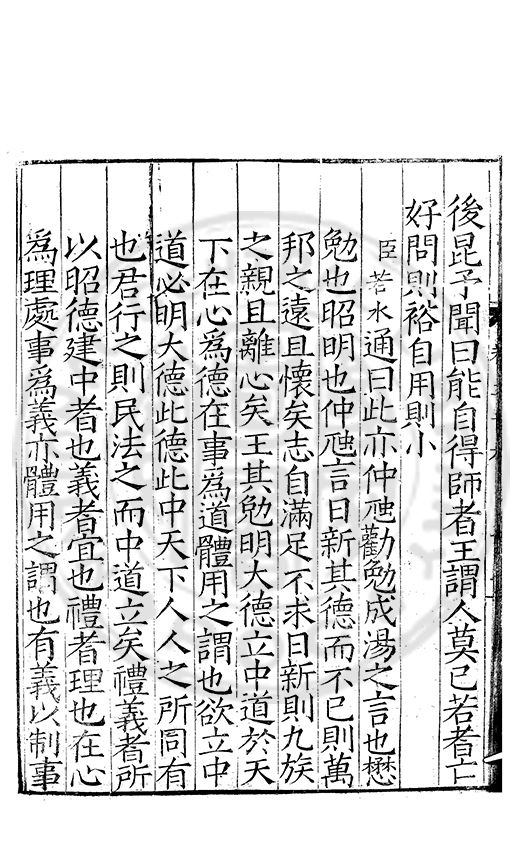 後昆予聞曰能自得師者王謂人莫己若者亡
好問則裕自用則小
臣若水通曰此亦仲虺勸勉成湯之言也懋
勉也昭明也仲虺言日新其德而不已則萬
邦之遠且懷矣志自滿足不求日新則九族
之親且離心矣王其勉明大德立中道於天
下在心為德在事為道體用之謂也欲立中
道必明大德此德此中天下人人之所同有
也君行之則民法之而中道立矣禮義者所
以昭德建中者也義者宜也禮者理也在心
為理處事為義亦體用之謂也有義以制事